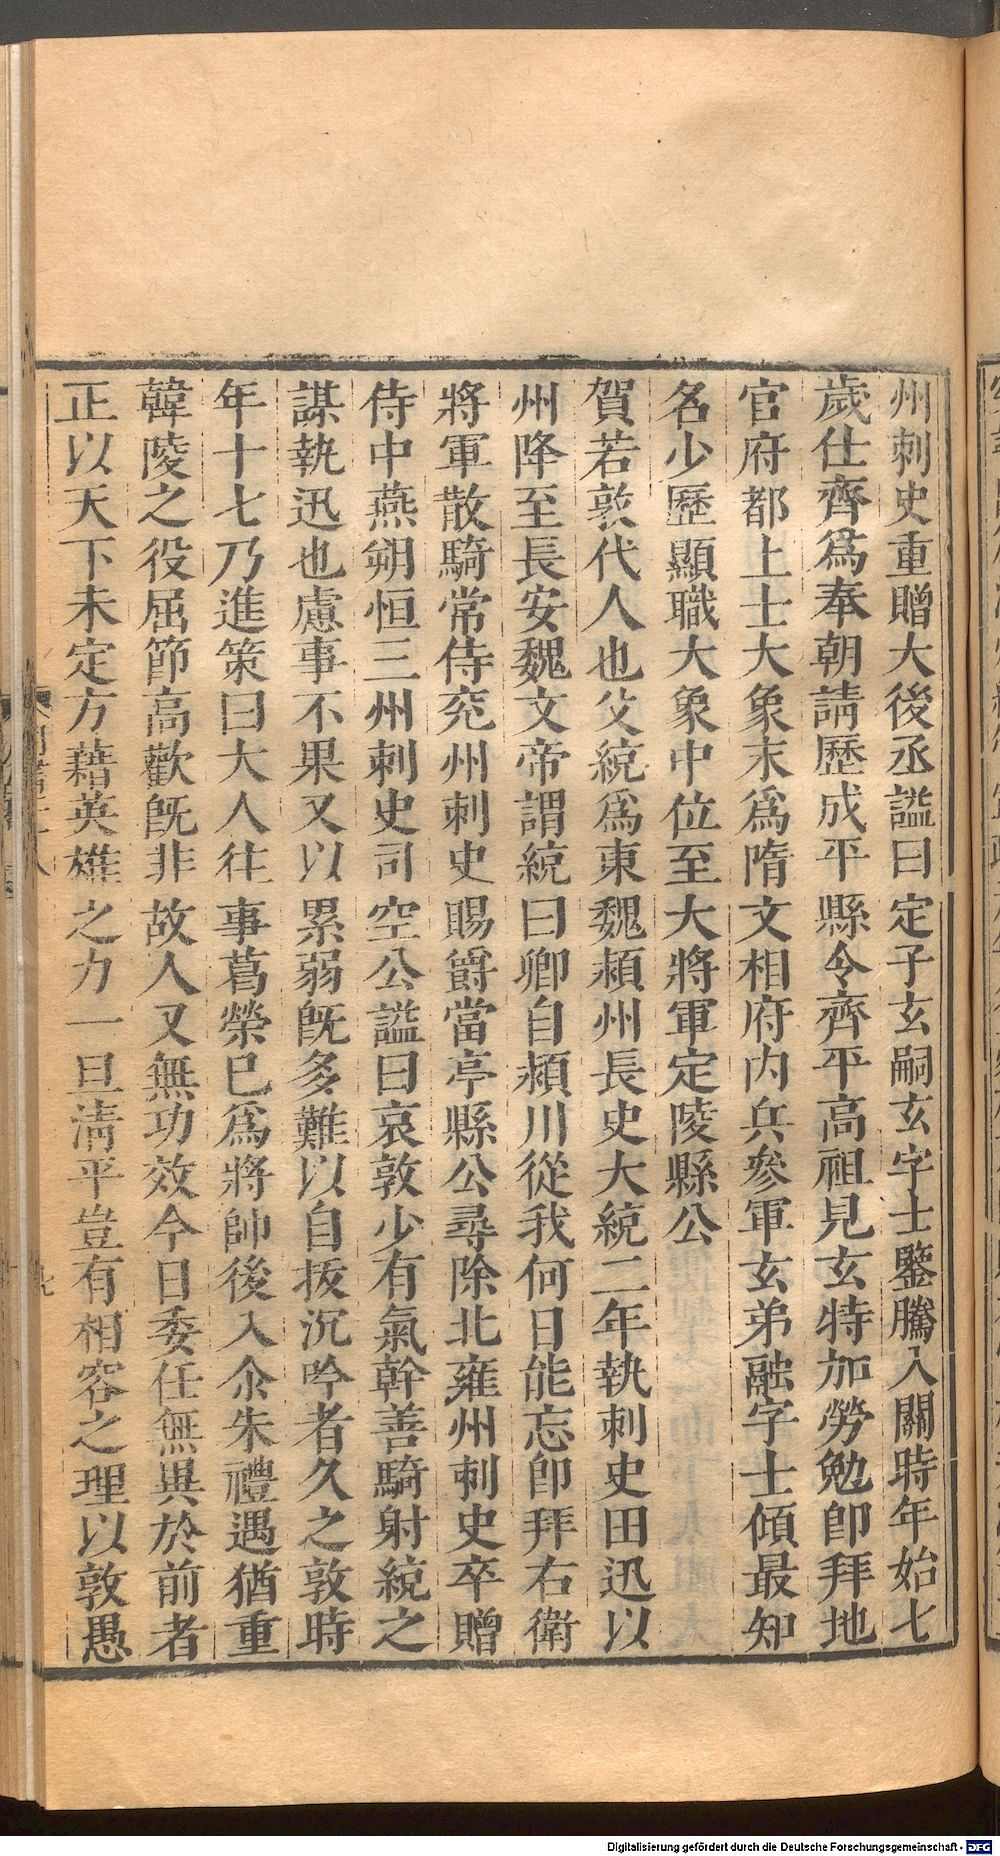 州刺史重贈大後丞謚曰定子玄嗣玄字士鑒騰入關時年始七
歲仕齊爲奉朝請歷成平縣令齊平高祖見玄特加勞勉卽拜地
官府都上士大象末爲隋文相府内兵參軍玄弟融字士傾最知
名少歷顯職大象中位至大將軍定陵縣公
賀若敦代人也父統爲東魏潁州長史大統二年執刺史田迅以
州降至長安魏文帝謂統曰卿自潁川從我何日能忘卽拜右衛
將軍散騎常侍兖州刺史賜爵當亭縣公尋除北雍州刺史卒贈
侍中燕朔恒三州刺史司空公謚曰哀敦少有氣幹善騎射統之
謀執迅也慮事不果又以累弱旣多難以自拔沉吟者久之敦時
年十七乃進策曰大人往事葛榮已爲將帥後入尒朱禮遇猶重
韓陵之役屈節高歡旣非故人又無功效今日委任無異於前者
正以天下未定方藉英雄之力一旦淸平豈有相容之理以敦愚
Digitalisierung gefördert durch die Deutsche Forschungsgemeinschaft - DFG